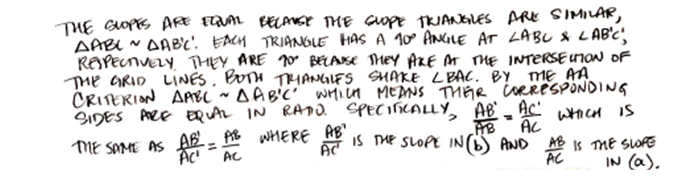 THE SLOPES ARE EQUAL BECAUSE THE SLOPE TRIANGLES ARE SIMILAR,
ΔABC ~ ΔAB'C'. EACH TRIANGLE HAS A 90° ANGLE AT ∠ABC & ∠AB'C',
RESPECTIVELY. THEY ARE 90° BECAUSE THEY ARE AT THE INTERSECTION OF
THE GRID LINES. BOTH TRIANGLES SHARE ∠BAC. BY THE AA
CRITERION ΔABC ~ ΔAB'C' WHICH MEANS THEIR CORRESPONDING
SIDES ARE EQUAL IN RATIO. SPECIFICALLY, AB'/AB = AC'/AC WHICH IS
THE SAME AS AB'/AC' = AB/AC WHERE AB'/AC' IS THE SLOPE IN (b) AND AB/AC IS THE SLOPE
IN (a).